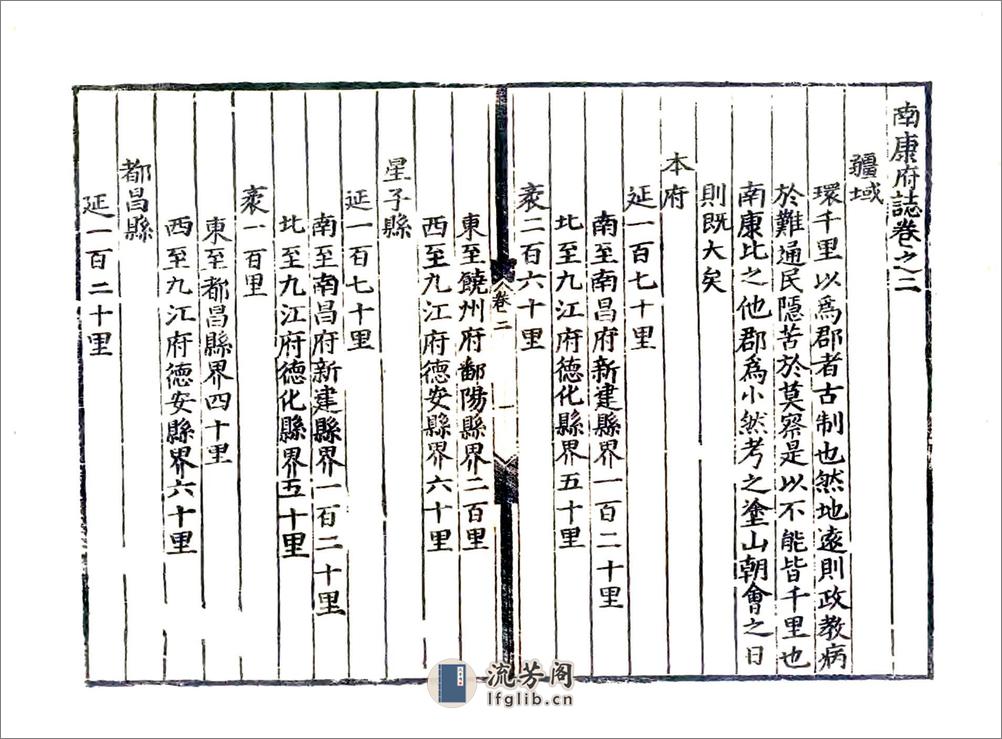 南康府誌卷之二
疆域
環千里以爲郡者古制也然地遠則政教病
於難通民隱苦於莫察是以不能皆千里也
南康比之他郡爲小然考之塗山朝會之日
則既大矣
本府
延一百七十里
南至南昌府新建縣界一百二十里
北至九江府德化縣界五十里
袤二百六十里
卷二
一
東至饒州府鄱陽縣界二百里
西至九江府德安縣界六十里
星子縣
延一百七十里
南至南昌府新建縣界一百二十里
北至九江府德化縣界五十里
袤一百里
東至都昌縣界四十里
西至九江府德安縣界六十里
都昌縣
延一百二十里
流芳阁
lfglib.cn